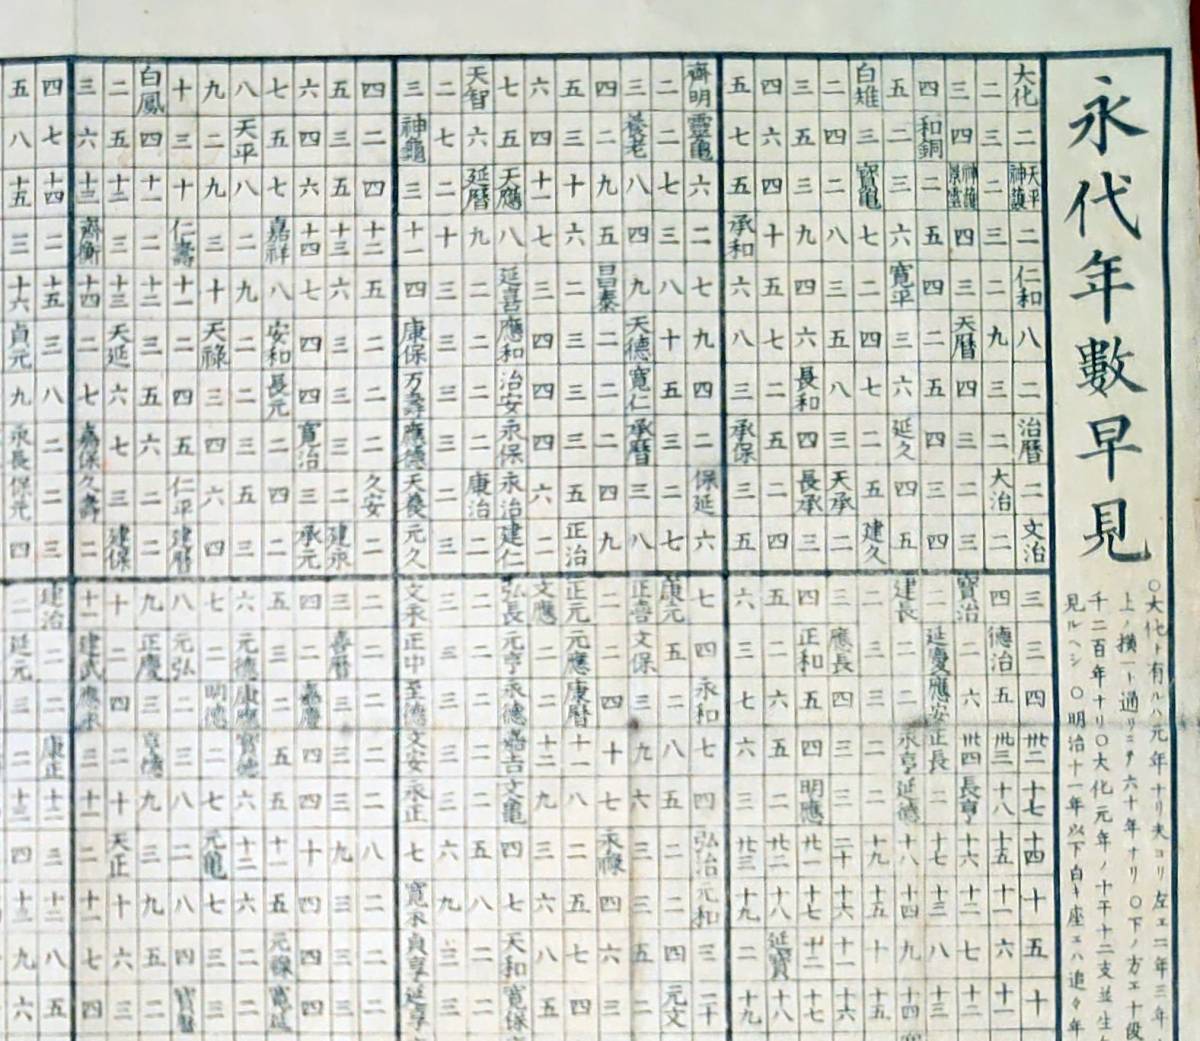 永代年數早見
○大化ト有ルハ元年ナリ夫ヨリ左エ二年三年
上ノ横一ト通リニテ六十年ナリ○下ノ方エ十段
千二百年ナリ○大化元年ノ十干十二支並生
見ルヘシ○明治十一年以下白キ座エハ追々年
大化 二 三 四 五 白雉 二 三 四 五 齊明 二 三 四 五 六 七 天智 二 三 四 五 六 七 八 九 十 白鳳 二 三 四 五
二 三 四 和銅 二 三 四 五 六 七 靈龜 二 養老 二 三 四 五 六 七 神龜 二 三 四 五 天平 二 三 四 五 六 七 八
天平神護 二 神護景雲 二 三 寶龜 二 三 四 五 六 七 八 九 十 十一 天應 延暦 二 三 四 五 六 七 八 九 十 十一 十二 十三 十四 十五
二 三 四 五 六 七 八 九 十 承和 二 三 四 五 六 七 八 九 十 十一 十二 十三 十四 嘉祥 二 三 仁壽 二 三 齊衡 二 三
仁和 二 三 四 寛平 二 三 四 五 六 七 八 九 昌泰 二 三 延喜 二 三 四 五 六 七 八 九 十 十一 十二 十三 十四 十五 十六
八 九 天暦 二 三 四 五 六 七 八 九 十 天德 二 三 四 應和 二 三 康保 二 三 四 安和 二 天祿 二 三 天延 二 三 貞元
二 三 四 五 六 七 八 長和 二 三 四 五 寛仁 二 三 四 治安 二 三 万壽 二 三 四 長元 二 三 四 五 六 七 八 九
治暦 二 三 四 延久 二 三 四 五 承保 二 三 承暦 二 三 四 永保 二 三 應德 二 三 寛治 二 三 四 五 六 七 嘉保 二 永長
二 大治 二 三 四 五 天承 長承 二 三 保延 二 三 四 五 六 永治 康治 二 天養 久安 二 三 四 五 六 仁平 二 三 久壽 二 保元
文治 二 三 四 五 建久 二 三 四 五 六 七 八 九 正治 二 建仁 二 三 元久 二 建永 承元 二 三 四 建暦 二 建保 二 三 四
三 四 寶治 二 建長 二 三 四 五 六 七 康元 正嘉 二 正元 文應 弘長 二 三 文永 二 三 四 五 六 七 八 九 十 十一 建治 二
三 德治 二 延慶 二 三 應長 正和 二 三 四 五 文保 二 元應 二 元亨 二 三 正中 二 嘉暦 二 三 元德 二 元弘 正慶 二 建武 二 延元
四 五 六 應安 二 三 四 五 六 七 永和 二 三 四 康暦 二 永德 二 三 至德 二 三 嘉慶 二 康應 明德 二 三 四 應永 二 三
卅二 卅三 卅四 正長 永享 二 三 四 五 六 七 八 九 十 十一 十二 嘉吉 二 三 文安 二 三 四 五 寶德 二 三 享德 二 三 康正 二
十七 十八 長亨 二 延德 二 三 明應 二 三 四 五 六 七 八 九 文龜 二 三 永正 二 三 四 五 六 七 八 九 十 十一 十二 十三
十四 十五 十六 十七 十八 十九 二十 廿一 廿二 廿三 弘治 二 三 永祿 二 三 四 五 六 七 八 九 十 十一 十二 元龜 二 三 天正 二 三 四
十 十一 十二 十三 十四 十五 十六 十七 十八 十九 元和 二 三 四 五 六 七 八 九 寛永 二 三 四 五 六 七 八 九 十 十一 十二 十三
五 六 七 八 九 十 十一 十二 延寶 二 三 四 五 六 七 八 天和 二 三 貞享 二 三 四 元祿 二 三 四 五 六 七 八 九
十 十一 十二 十三 十四 十五 十六 十七 十八 十九 二十 元文 二 三 四 五 寛保 二 三 延享 二 三 四 寛延 二 三 寶暦 二 三 四 五 六